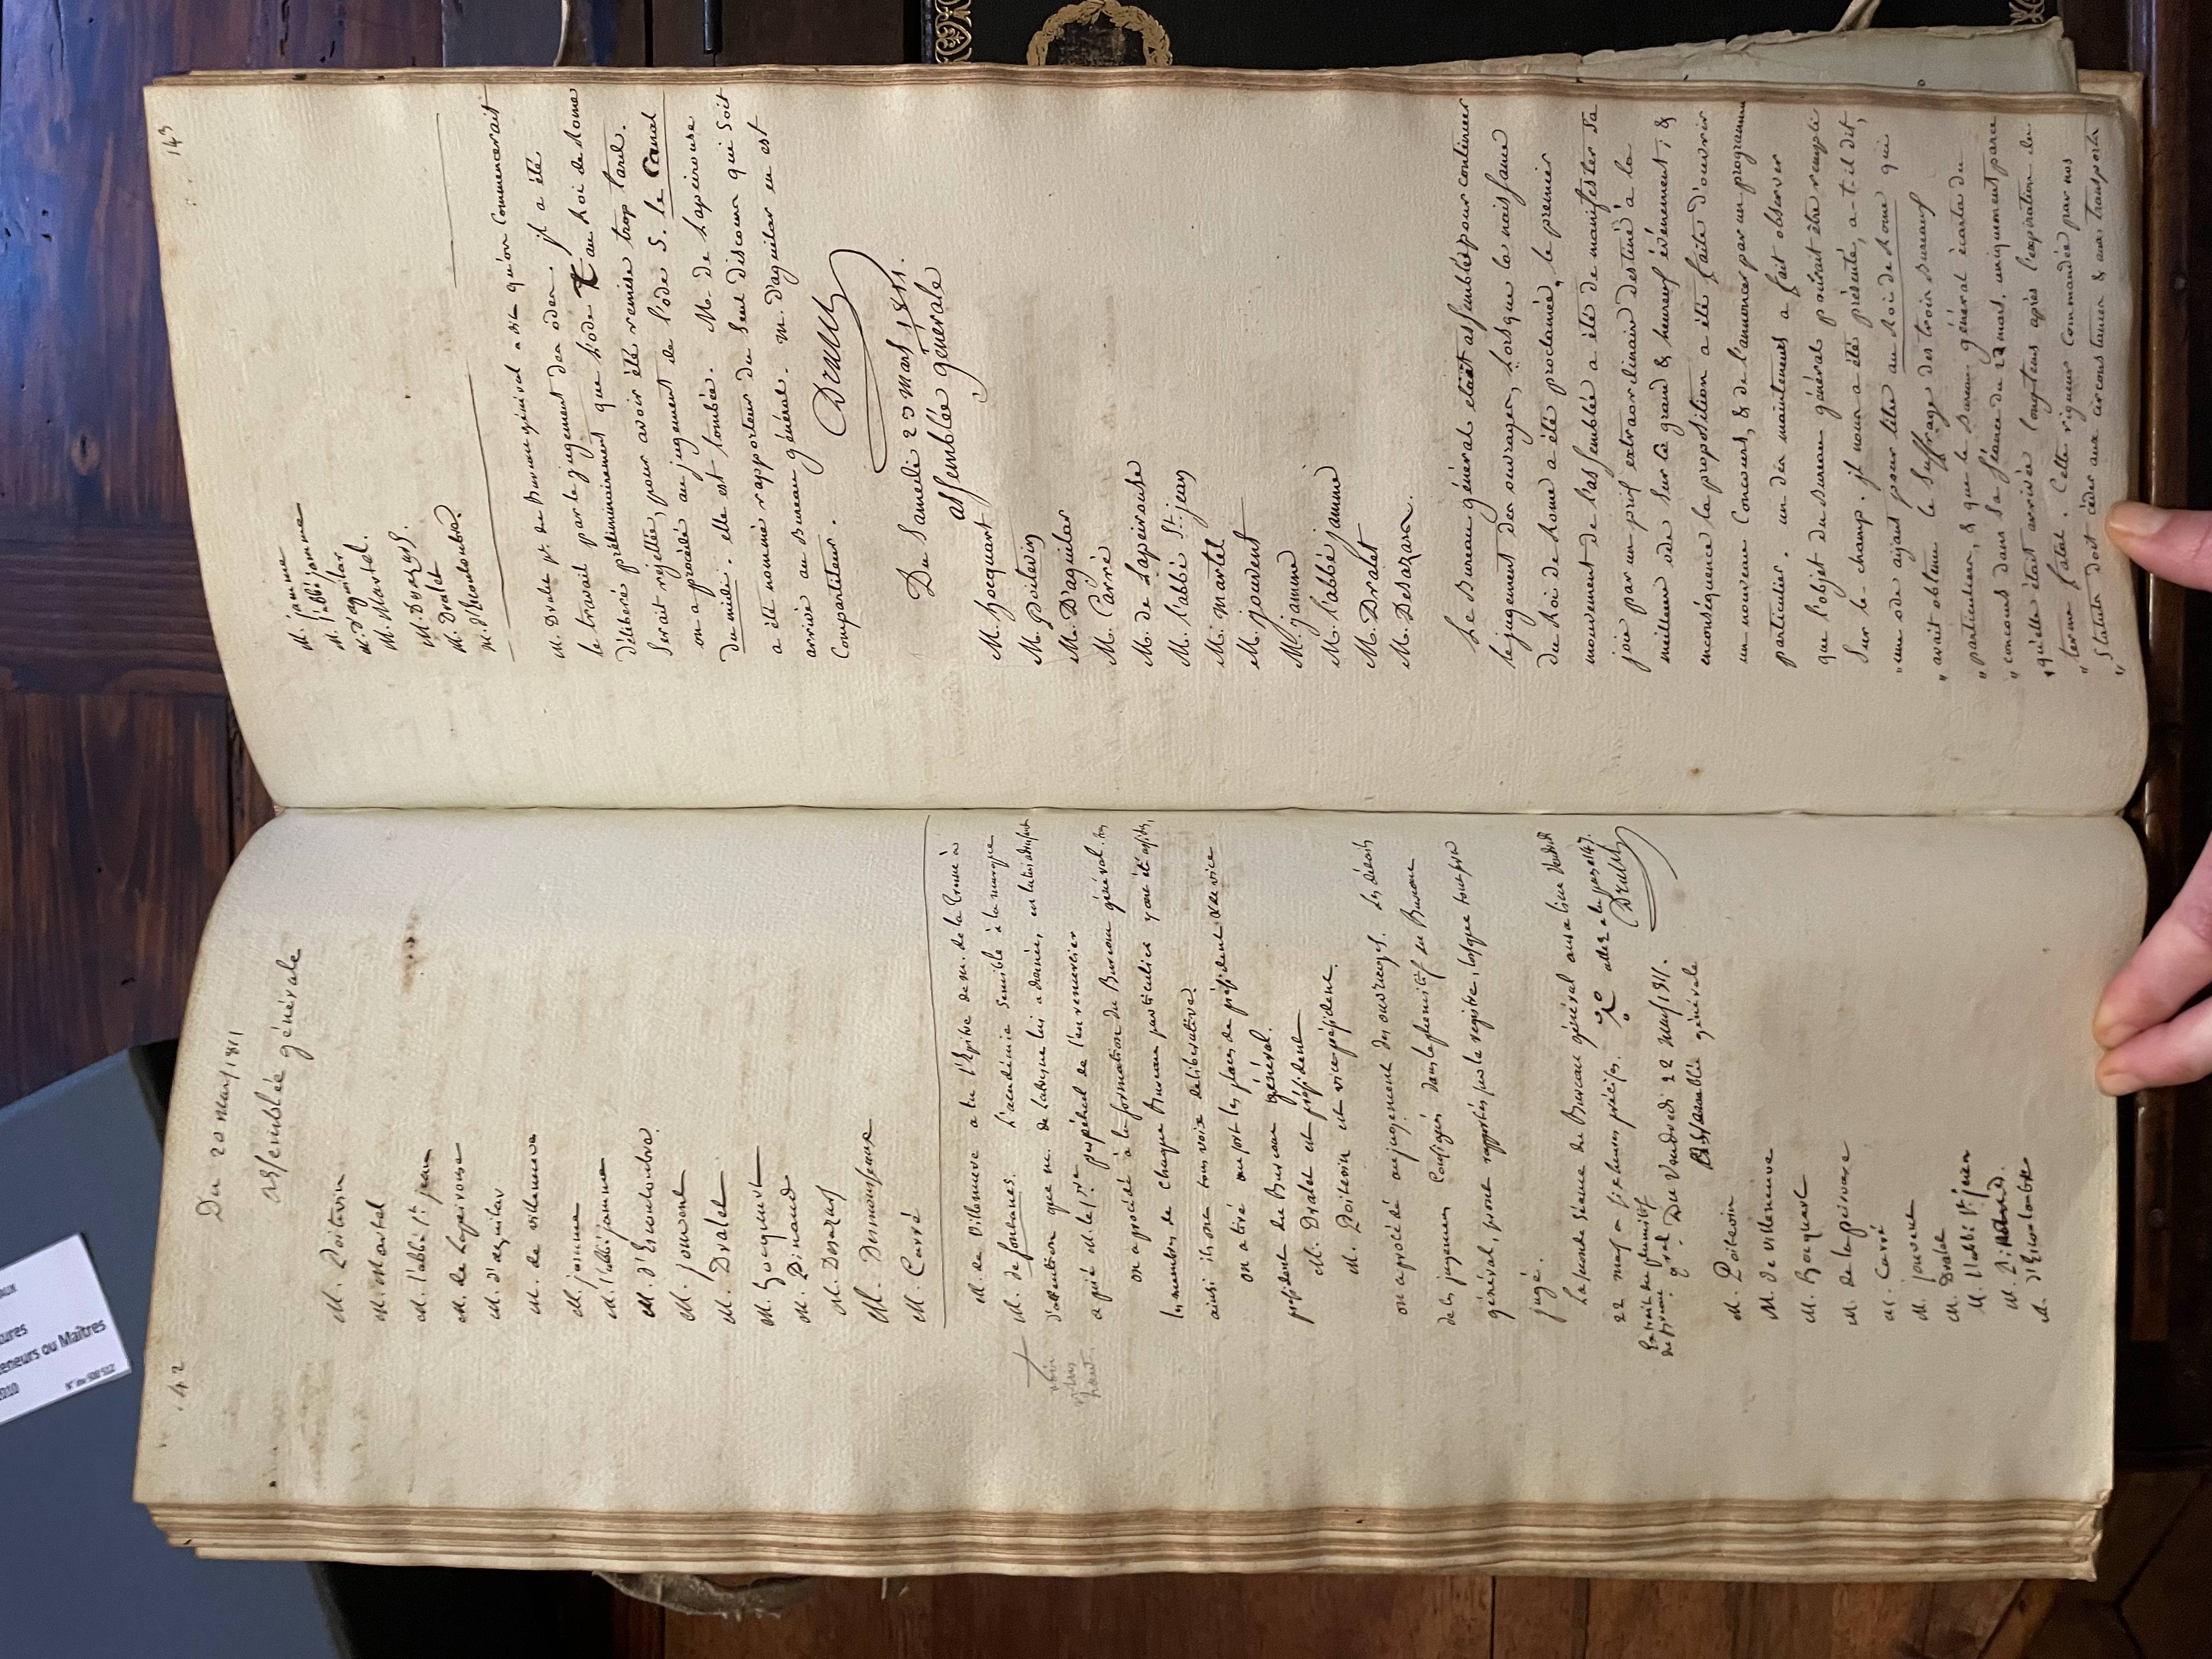 142
Du 20 mars 1811
assemblée générale
M. Poitevin
M. Martel
M. l'abbé St. jean
M. de Lapeirouse
M. d'aguilar
M. de villeneuve
M. jamme
M. l'abbé jamme
M. d'Escouloubre.
M. jouvent
M. Dralet
M. hocquart
M. Pinaud
M. Desazars
M. Desmousseaux
M. Carré
M. de Villeneuve a lu l'Epitre de m. de la Tresne à
M. de fontanes. L'académie sensible à la marque
d'attention que m. de la tresne lui a donnée, en lui adressant
a prié M. le sre. perpétuel de l'en remercier
voir
plus
haut
on a procédé à la formation du Bureau général. les
membres de chaque Bureau particulier y ont été appelés,
ainsi ils ont tous voix délibérative.
on a tiré au sort les places de président & de vice
président du Bureau général.
M. Dralet est président
M. Poitevin est vice-président.
on a procédé au jugement des ouvrages. Les détails
de les jugemens consignés dans le plumitif du Bureau
général, seront rapportés sur le registre, lorsque tout sera
jugé.
La seconde séance du Bureau général aura lieu Vendredi
22 mars a six heures précises. allez a la page 147.
Extrait du plumitif
du bureau gral. Du Vendredi 22 Mars 1811. Dralet
assemblée générale
M. Poitevin
M. de villeneuve
M. hocquart
M. de lapeirouse
M. Carré
M. jouvent
M. Dralet
M. l'abbé St. jean
M. Pinaud.
M. d'Escouloubre
143
M. jamme
M. l'abbé jamme
M. d'aguilar
M. Martel.
M. Desazars.
M. Dralet
M. d'Escouloubre.
M. Dralet pt. du Bureau général a dit qu'on commencerait
le travail par le jugement des odes. il a été
délibéré préliminairement que l'ode au Roi de Rome
serait rejettée, pour avoir été remise trop tard.
on a procédé au jugement de l'ode 5. le Canal
du midi. elle est tombée. M. de Lapeirouse
a été nommé rapporteur du seul discours qui soit
arrivé au Bureau général. M. d'aguilar en est
Compartiteur.
Dralet
Du Samedi 23 mars 1811.
assemblée générale
M. hocquart
M. Poitevin
M. D'aguilar
M. Carré
M. de Lapeirouse
M. l'abbé St. jean
M. martel
M. jouvent
M. jamme
M. l'abbé jamme
M. Dralet
M. Desazars.
Le Bureau général etait assemblé pour continuer
le jugement des ouvrages, lorsque la naissance
du Roi de Rome a été proclamée, le premier
mouvement de l'assemblée a été de manifester sa
joie par un prix extraordinaire destiné à la
meilleure ode sur ce grand & heureux événement, &
en conséquence la proposition a été faite d'ouvrir
un nouveau Concours, & de l'annoncer par un programme
particulier. un des mainteneurs a fait observer
que l'objet du Bureau général pourait être rempli
sur le champ. il nous a été présenté, a-t-il dit,
"une ode ayant pour titre au Roi de Rome qui
"avait obtenu le suffrage des trois bureaux
"particuliers, & que le bureau général écarta du
"concours dans sa séance du 22 mars, uniquement parce
"qu'elle était arrivée longtems après l'expiration du
"terme fatal. Cette rigueur commandée par nos
"statuts doit céder aux circonstances & aux transports